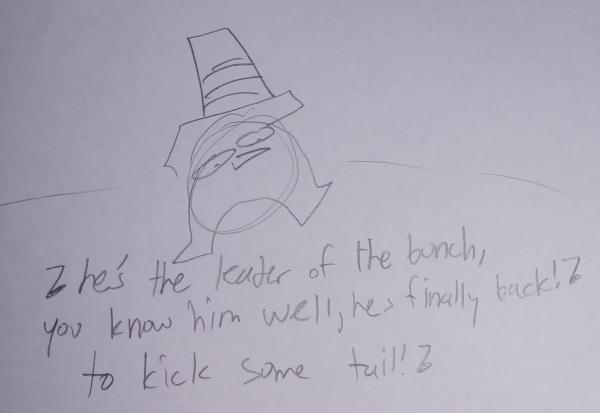 he's the leader of the bunch,
you know him well, hes finally back!
to kick some tail!